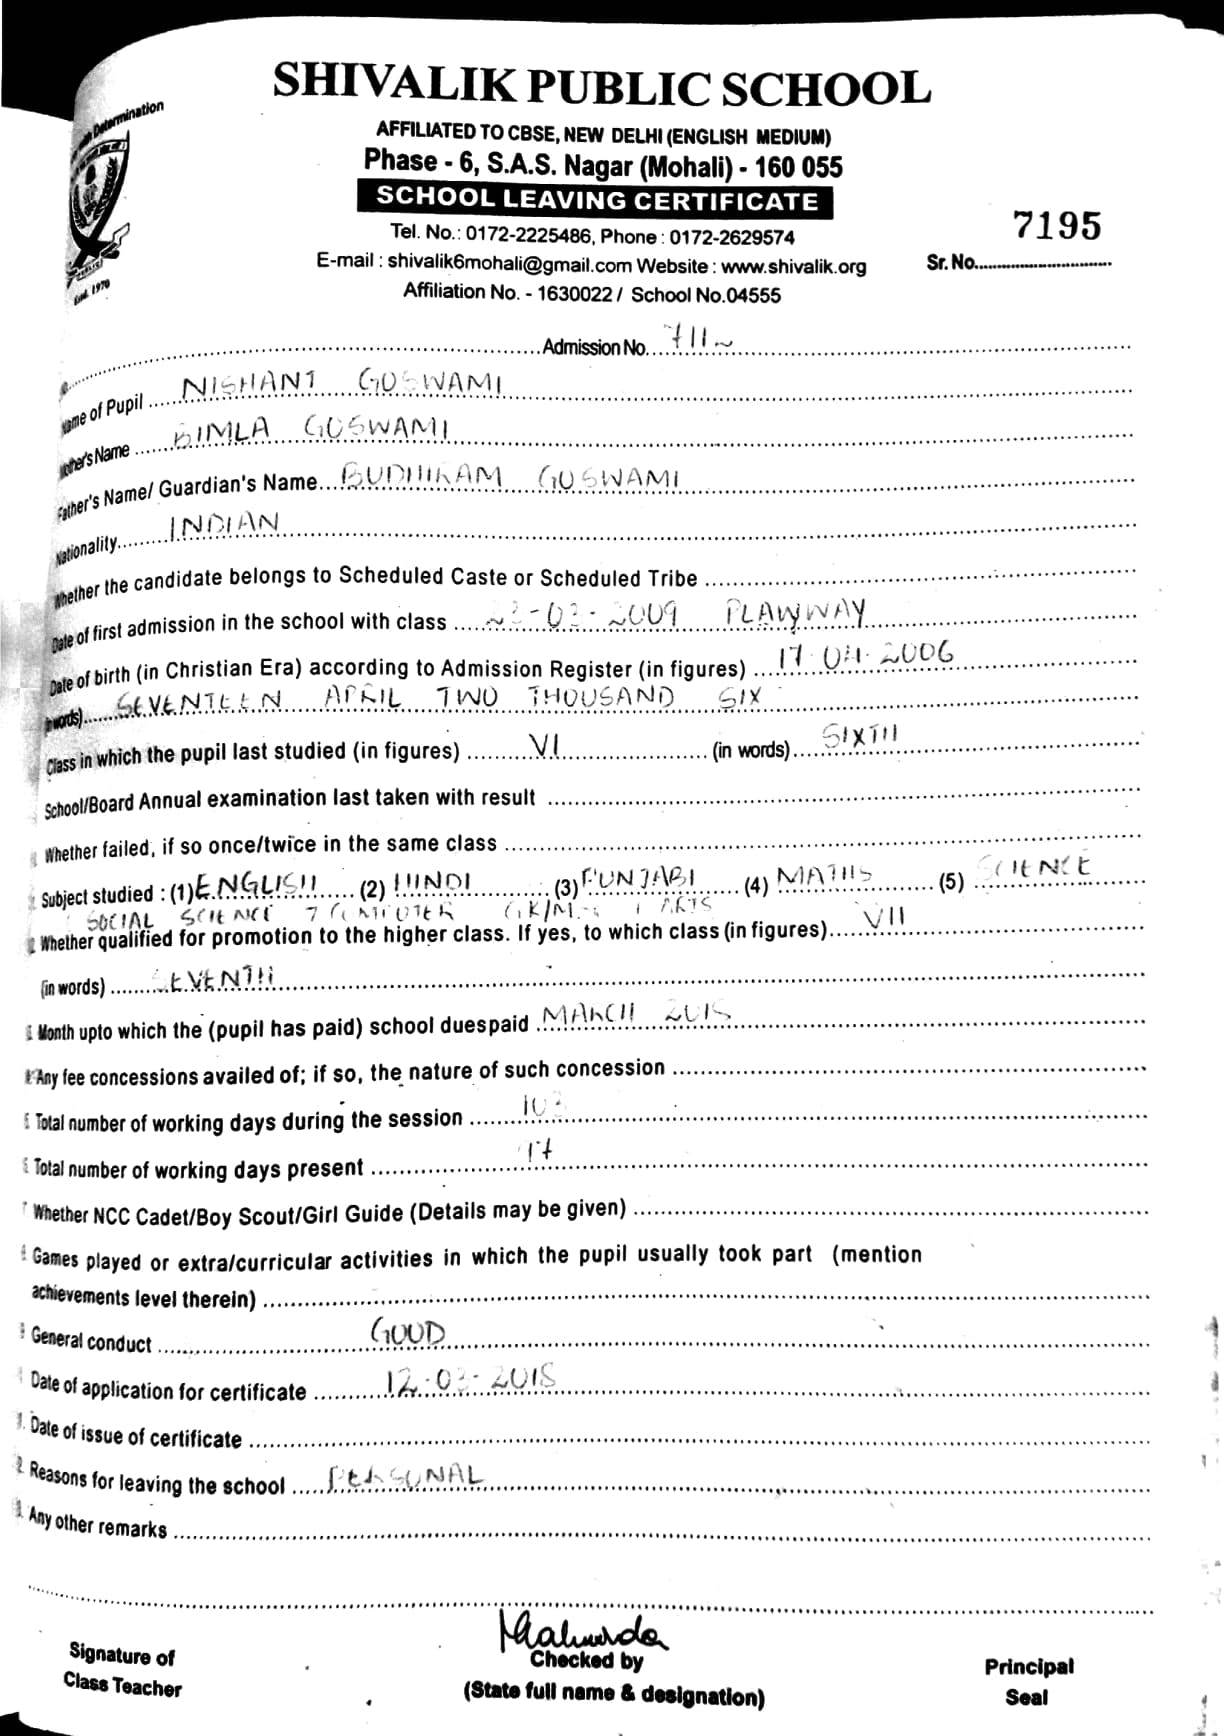 Determination
SHIVALIK PUBLIC SCHOOL
AFFILIATED TO CBSE, NEW DELHI (ENGLISH MEDIUM)
Phase - 6, S.A.S. Nagar (Mohali) - 160 055
SCHOOL LEAVING CERTIFICATE
Tel. No.: 0172-2225486, Phone : 0172-2629574
E-mail : shivalik6mohali@gmail.com Website : www.shivalik.org
Affiliation No. - 1630022 / School No.04555
7195
Sr. No.
Estd. 1970
Admission No.
Name of Pupil NISHANT GOSWAMI
Mother's Name BIMLA GOSWAMI
Father's Name/ Guardian's Name BUDHIRAM GOSWAMI
Nationality INDIAN
Whether the candidate belongs to Scheduled Caste or Scheduled Tribe
Date of first admission in the school with class 03-2009 PLAYWAY
Date of birth (in Christian Era) according to Admission Register (in figures) 17-04-2006
(in words) SEVENTEEN APRIL TWO THOUSAND SIX
Class in which the pupil last studied (in figures) VI (in words) SIXTH
School/Board Annual examination last taken with result
Whether failed, if so once/twice in the same class
Subject studied : (1) ENGLISH (2) HINDI (3) PUNJABI (4) MATHS (5) SCIENCE
SOCIAL SCIENCE 7 COMPUTER ARTS
Whether qualified for promotion to the higher class. If yes, to which class (in figures) VII
(in words) SEVENTH
Month upto which the (pupil has paid) school duespaid MARCH
Any fee concessions availed of; if so, the nature of such concession
Total number of working days during the session 103
Total number of working days present 17
Whether NCC Cadet/Boy Scout/Girl Guide (Details may be given)
Games played or extra/curricular activities in which the pupil usually took part (mention
achievements level therein)
General conduct GOOD
Date of application for certificate 12-03-2018
Date of issue of certificate
Reasons for leaving the school PERSONAL
Any other remarks
Signature of
Class Teacher
Checked by
(State full name & designation)
Principal
Seal